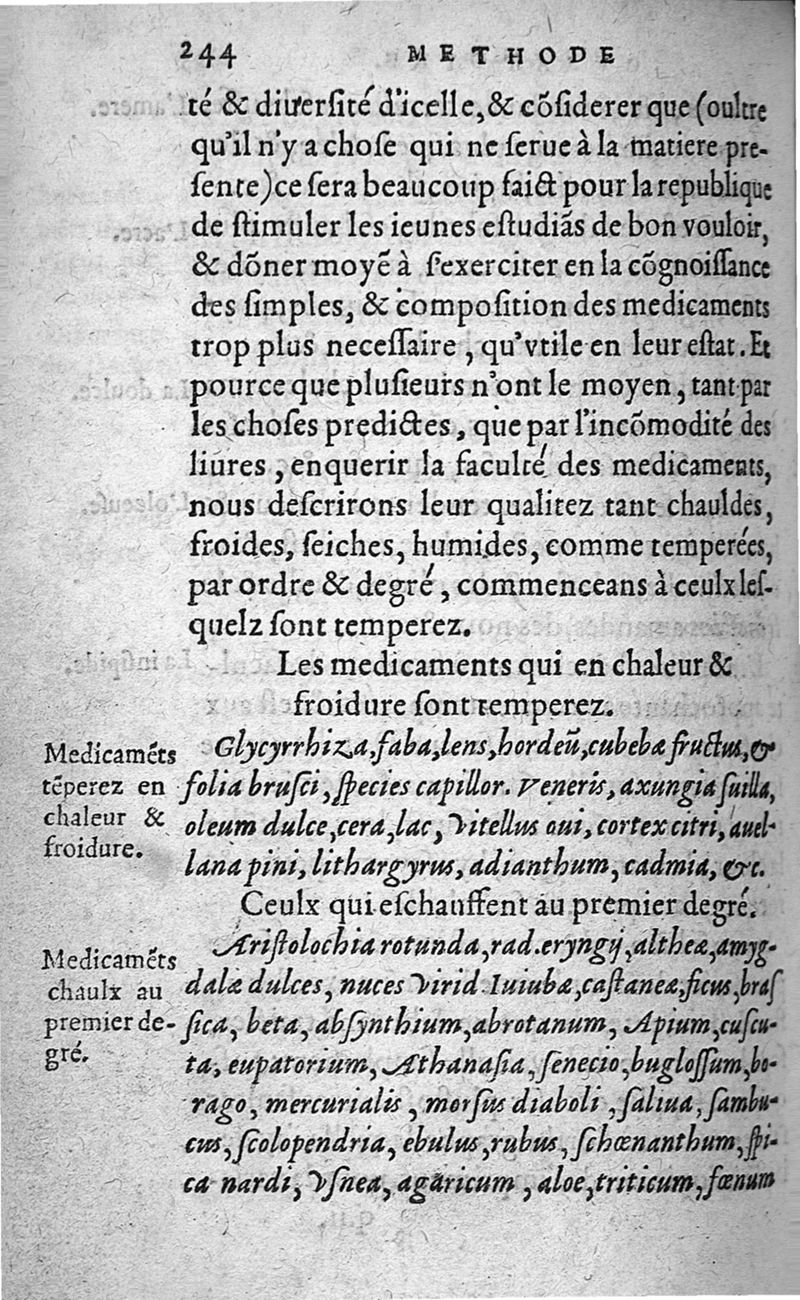 244 METHODE
té & diuerſité d'icelle, & cõſiderer que (oultre
qu'il n'y a choſe qui ne ſerue à la matiere pre-
ſente) ce ſera beaucoup faict pour la republique
de ſtimuler les ieunes eſtudiãs de bon vouloir,
& dõner moyẽ à ſ'exerciter en la cõgnoiſſance
des ſimples, & compoſition des medicaments
trop plus neceſſaire, qu'vtile en leur eſtat. Et
pource que pluſieurs n'ont le moyen, tant par
les choſes predictes, que par l'incõmodité des
liures, enquerir la faculté des medicaments,
nous deſcrirons leur qualitez tant chauldes,
froides, ſeiches, humides, comme temperées,
par ordre & degré, commenceans à ceulx leſ-
quelz ſont temperez.
Les medicaments qui en chaleur &
froidure ſont temperez.
Medicamẽts
tẽperez en
chaleur &
froidure.
Glycyrrhiza, faba, lens, hordeũ, cubebæ fructus, &
folia bruſci, ſpecies capillor. Veneris, axungia ſuilla,
oleum dulce, cera, lac, vitellus oui, cortex citri, auel-
lana pini, lithargyrus, adianthum, cadmia, &c.
Ceulx qui eſchauffent au premier degré.
Medicamẽts
chaulx au
premier de-
gré.
Ariſtolochia rotunda, rad. eryngij, altheæ, amyg-
dalæ dulces, nuces virid. Iuiubæ, caſtaneæ, ficus, braſ
ſica, beta, abſynthium, abrotanum, Apium, cuſcu-
ta, eupatorium, Athanaſia, ſenecio, bugloſſum, bo-
rago, mercurialis, morſus diaboli, ſaliua, ſambu-
cus, ſcolopendria, ebulus, rubus, ſchœnanthum, ſpi-
ca nardi, vſnea, agaricum, aloe, triticum, fœnum